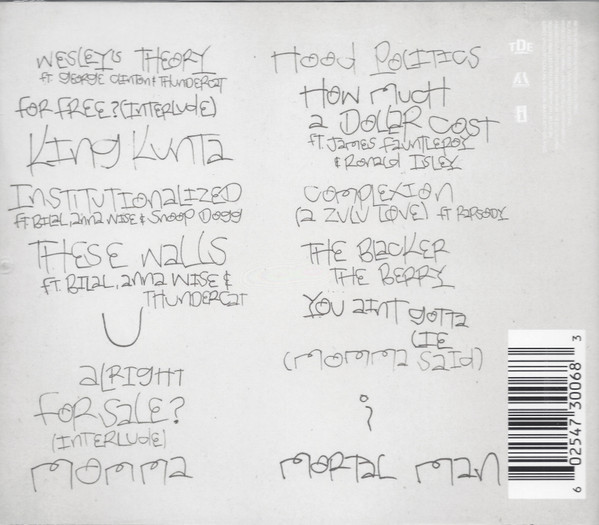 Wesley's Theory
ft George Clinton & Thundercat
For Free? (Interlude)
King Kunta
Institutionalized
ft Bilal, Anna Wise & Snoop Dogg
These Walls
ft. Bilal, Anna Wise &
Thundercat
U
Alright
For Sale?
(Interlude)
Momma
Hood Politics
How Much
a Dollar Cost
ft. James Fauntleroy
& Ronald Isley
Complexion
(a Zulu Love) ft Rapsody
The Blacker
The Berry
You Aint Gotta
Lie
(Momma Said)
i
Mortal Man
TDE
i
6 02547 30068 3